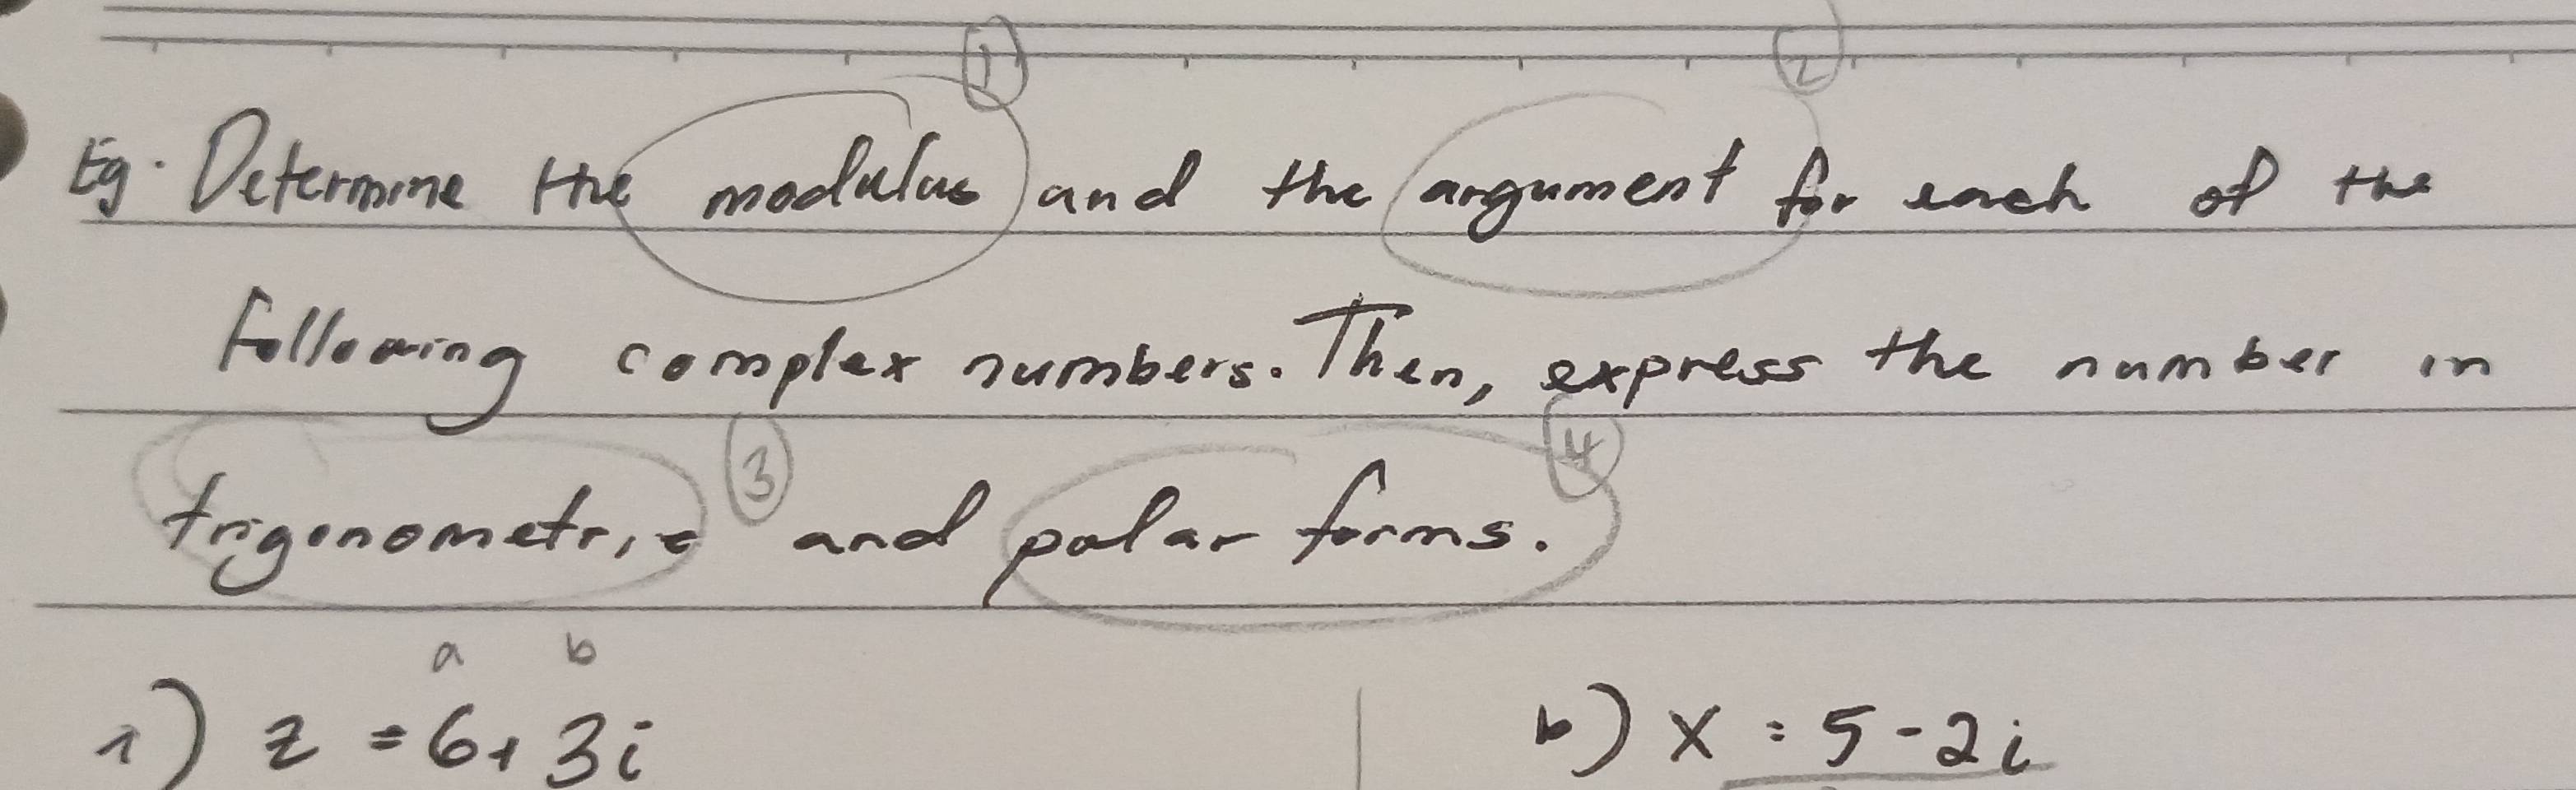 ① ②
Eg. Determine the modulus and the argument for each of the
following complex numbers. Then, express the number in
③ ④
trigonometric and polar forms.
a b
1) z = 6+3i b) x = 5-2i